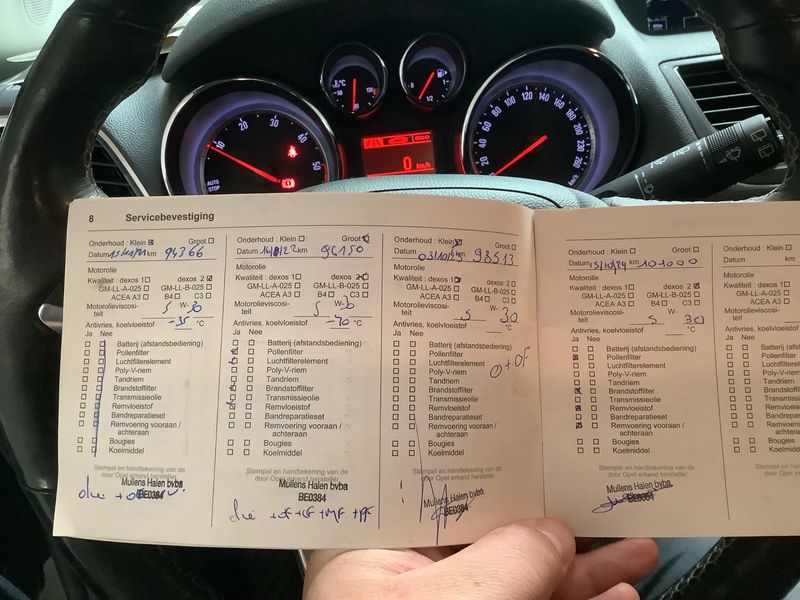 8 Servicebevestiging
Onderhoud : Klein Groot
Datum km 94366
Motorolie
Kwaliteit : dexos 1 dexos 2
GM-LL-A-025 GM-LL-B-025
ACEA A3 B4 C3
Motorolieviscosi- 5 W- 30
teit
Antivries, koelvloeistof -35 °C
Ja Nee
Batterij (afstandsbediening)
Pollenfilter
Luchtfilterelement
Poly-V-riem
Tandriem
Brandstoffilter
Transmissieolie
Remvloeistof
Bandreparatieset
Remvoering vooraan /
achteraan
Bougies
Koelmiddel
Stempel en handtekening van de
door Opel erkend hersteller
Mullens Halen bvba
BE0384
Onderhoud : Klein Groot
Datum km 96150
Motorolie
Kwaliteit : dexos 1 dexos 2
GM-LL-A-025 GM-LL-B-025
ACEA A3 B4 C3
Motorolieviscosi- 5 W- 30
teit
Antivries, koelvloeistof °C
Ja Nee
Batterij (afstandsbediening)
Pollenfilter
Luchtfilterelement
Poly-V-riem
Tandriem
Brandstoffilter
Transmissieolie
Remvloeistof
Bandreparatieset
Remvoering vooraan /
achteraan
Bougies
Koelmiddel
Stempel en handtekening van de
door Opel erkend hersteller
Mullens Halen bvba
BE0384
Onderhoud : Klein Groot
Datum km 98513
Motorolie
Kwaliteit : dexos 1 dexos 2
GM-LL-A-025 GM-LL-B-025
ACEA A3 B4 C3
Motorolieviscosi- 5 W- 30
teit
Antivries, koelvloeistof °C
Ja Nee
Batterij (afstandsbediening)
Pollenfilter
Luchtfilterelement
Poly-V-riem
Tandriem
Brandstoffilter
Transmissieolie
Remvloeistof
Bandreparatieset
Remvoering vooraan /
achteraan
Bougies
Koelmiddel
O+OF
Stempel en handtekening van de
door Opel erkend hersteller
Mullens Halen bvba
BE0384
Onderhoud : Klein Groot
Datum 15/10/24 km 101000
Motorolie
Kwaliteit : dexos 1 dexos 2
GM-LL-A-025 GM-LL-B-025
ACEA A3 B4 C3
Motorolieviscosi- 5 W- 30
teit
Antivries, koelvloeistof °C
Ja Nee
Batterij (afstandsbediening)
Pollenfilter
Luchtfilterelement
Poly-V-riem
Tandriem
Brandstoffilter
Transmissieolie
Remvloeistof
Bandreparatieset
Remvoering vooraan /
achteraan
Bougies
Koelmiddel
Stempel en handtekening van de
door Opel erkend hersteller
Mullens Halen bvba
BE0384
Onderhoud
Datum
Motorolie
Kwaliteit
Ja Nee
AUTO
STOP
30
40
50
°C
1/2
1
0 km/h
20
40
60
80
100
120
140
160